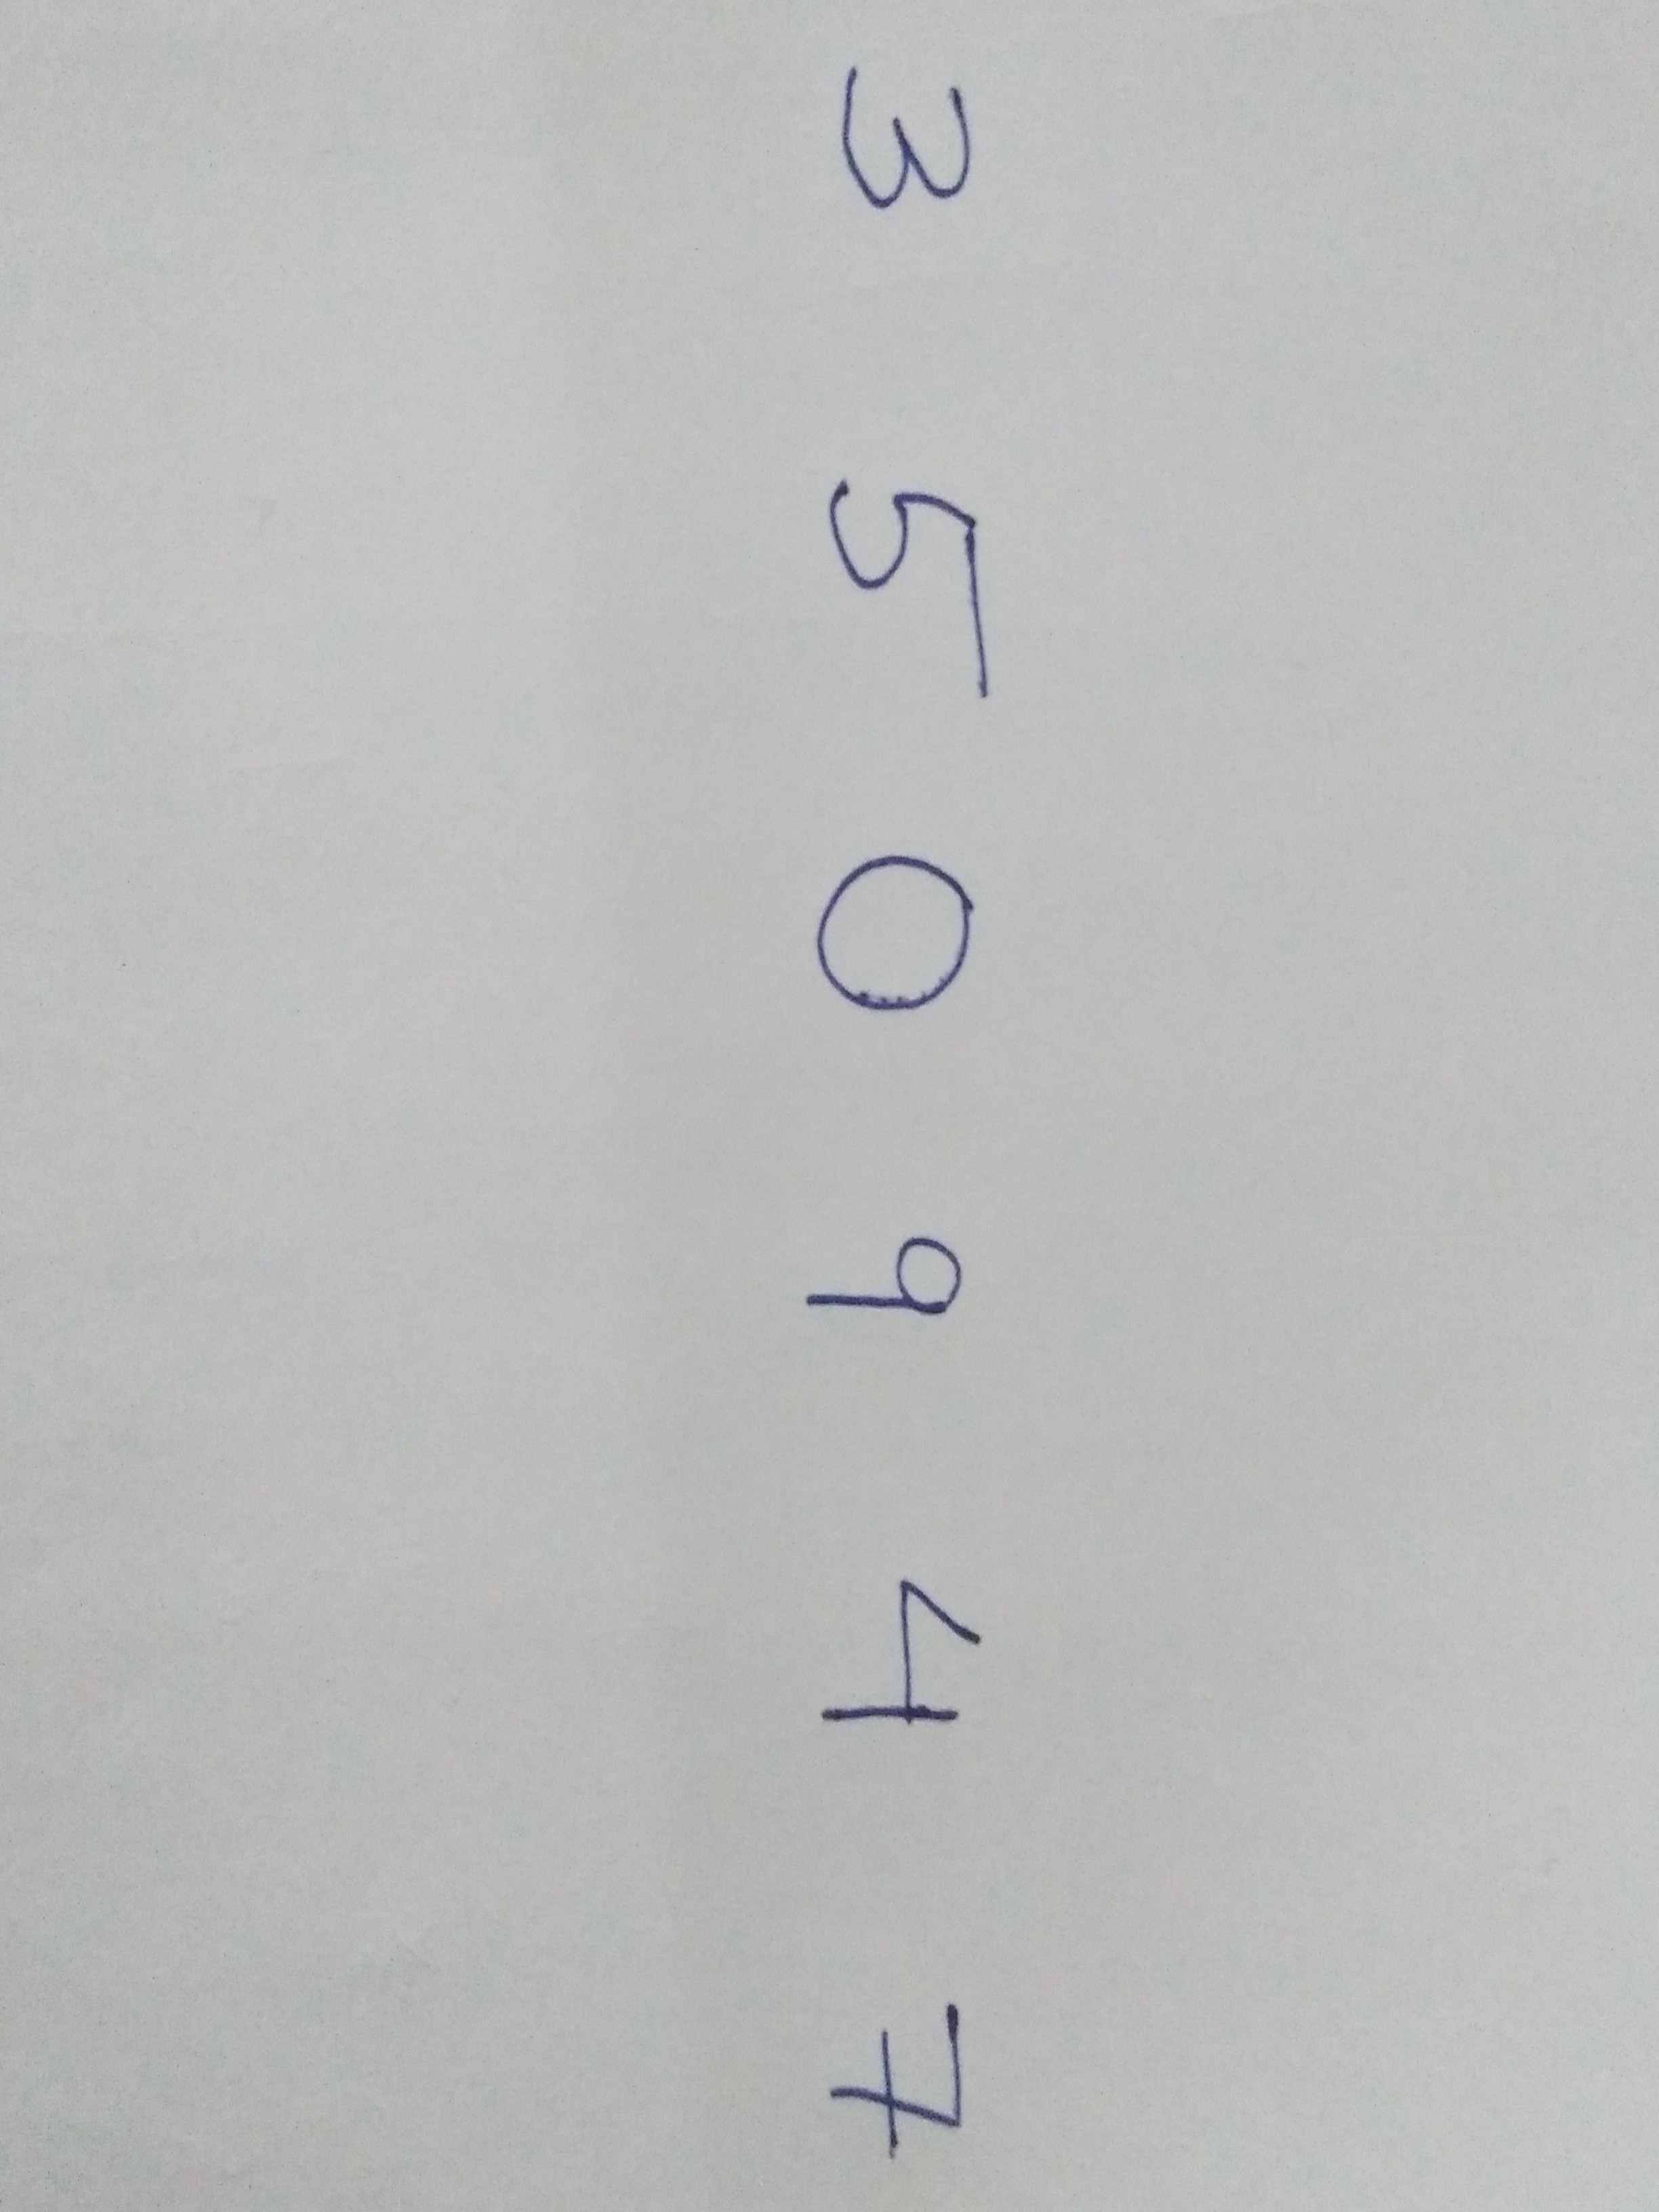 3 5 0 9 4 7